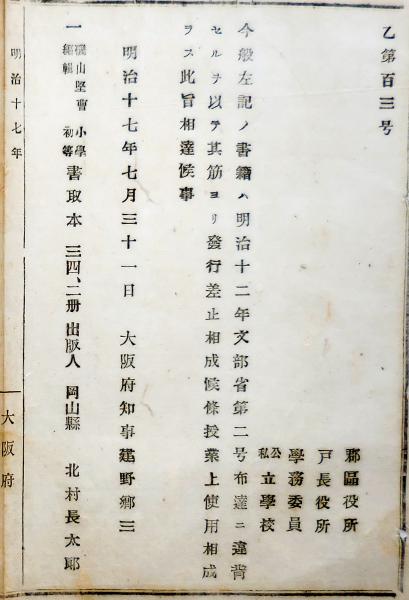 乙第百三号
郡區役所
戸長役所
學務委員
公私立學校
今般左記ノ書籍ハ明治十二年文部省第二号布達ニ違背
セルヲ以テ其筋ヨリ發行差止相成候條授業上使用相成
ラス此旨相達候事
明治十七年七月三十一日 大阪府知事建野郷三
一 磯山堅曹編輯 小學初等 書取本 三四、二册 出版人 岡山縣 北村長太郎
明治十七年
大阪府